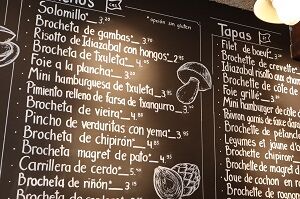 Solomillo
* opción sin gluten
Brocheta de gambas 3.95
Risotto de Idiazabal con hongos
Brocheta de txuleta
Foie a la plancha
Mini hamburguesa de txuleta
Pimiento relleno de farsa de txangurro
Brocheta de vieira
Pincho de verduritas con yema
Brocheta de chipirón
Brocheta magret de pato
Carrillera de cerdo
Brocheta de riñón
Tapas
Filet de boeuf
Brochette de crevettes
Idiazabal risotto aux
Brochette de côte de
Foie grillé
Mini hamburger de côte
Poivron garnis de farce
Brochette de
Légumes et jaune d'
Brochette de chipiron
Brochette de magret
Joue de cochon en
Brochette de rognon